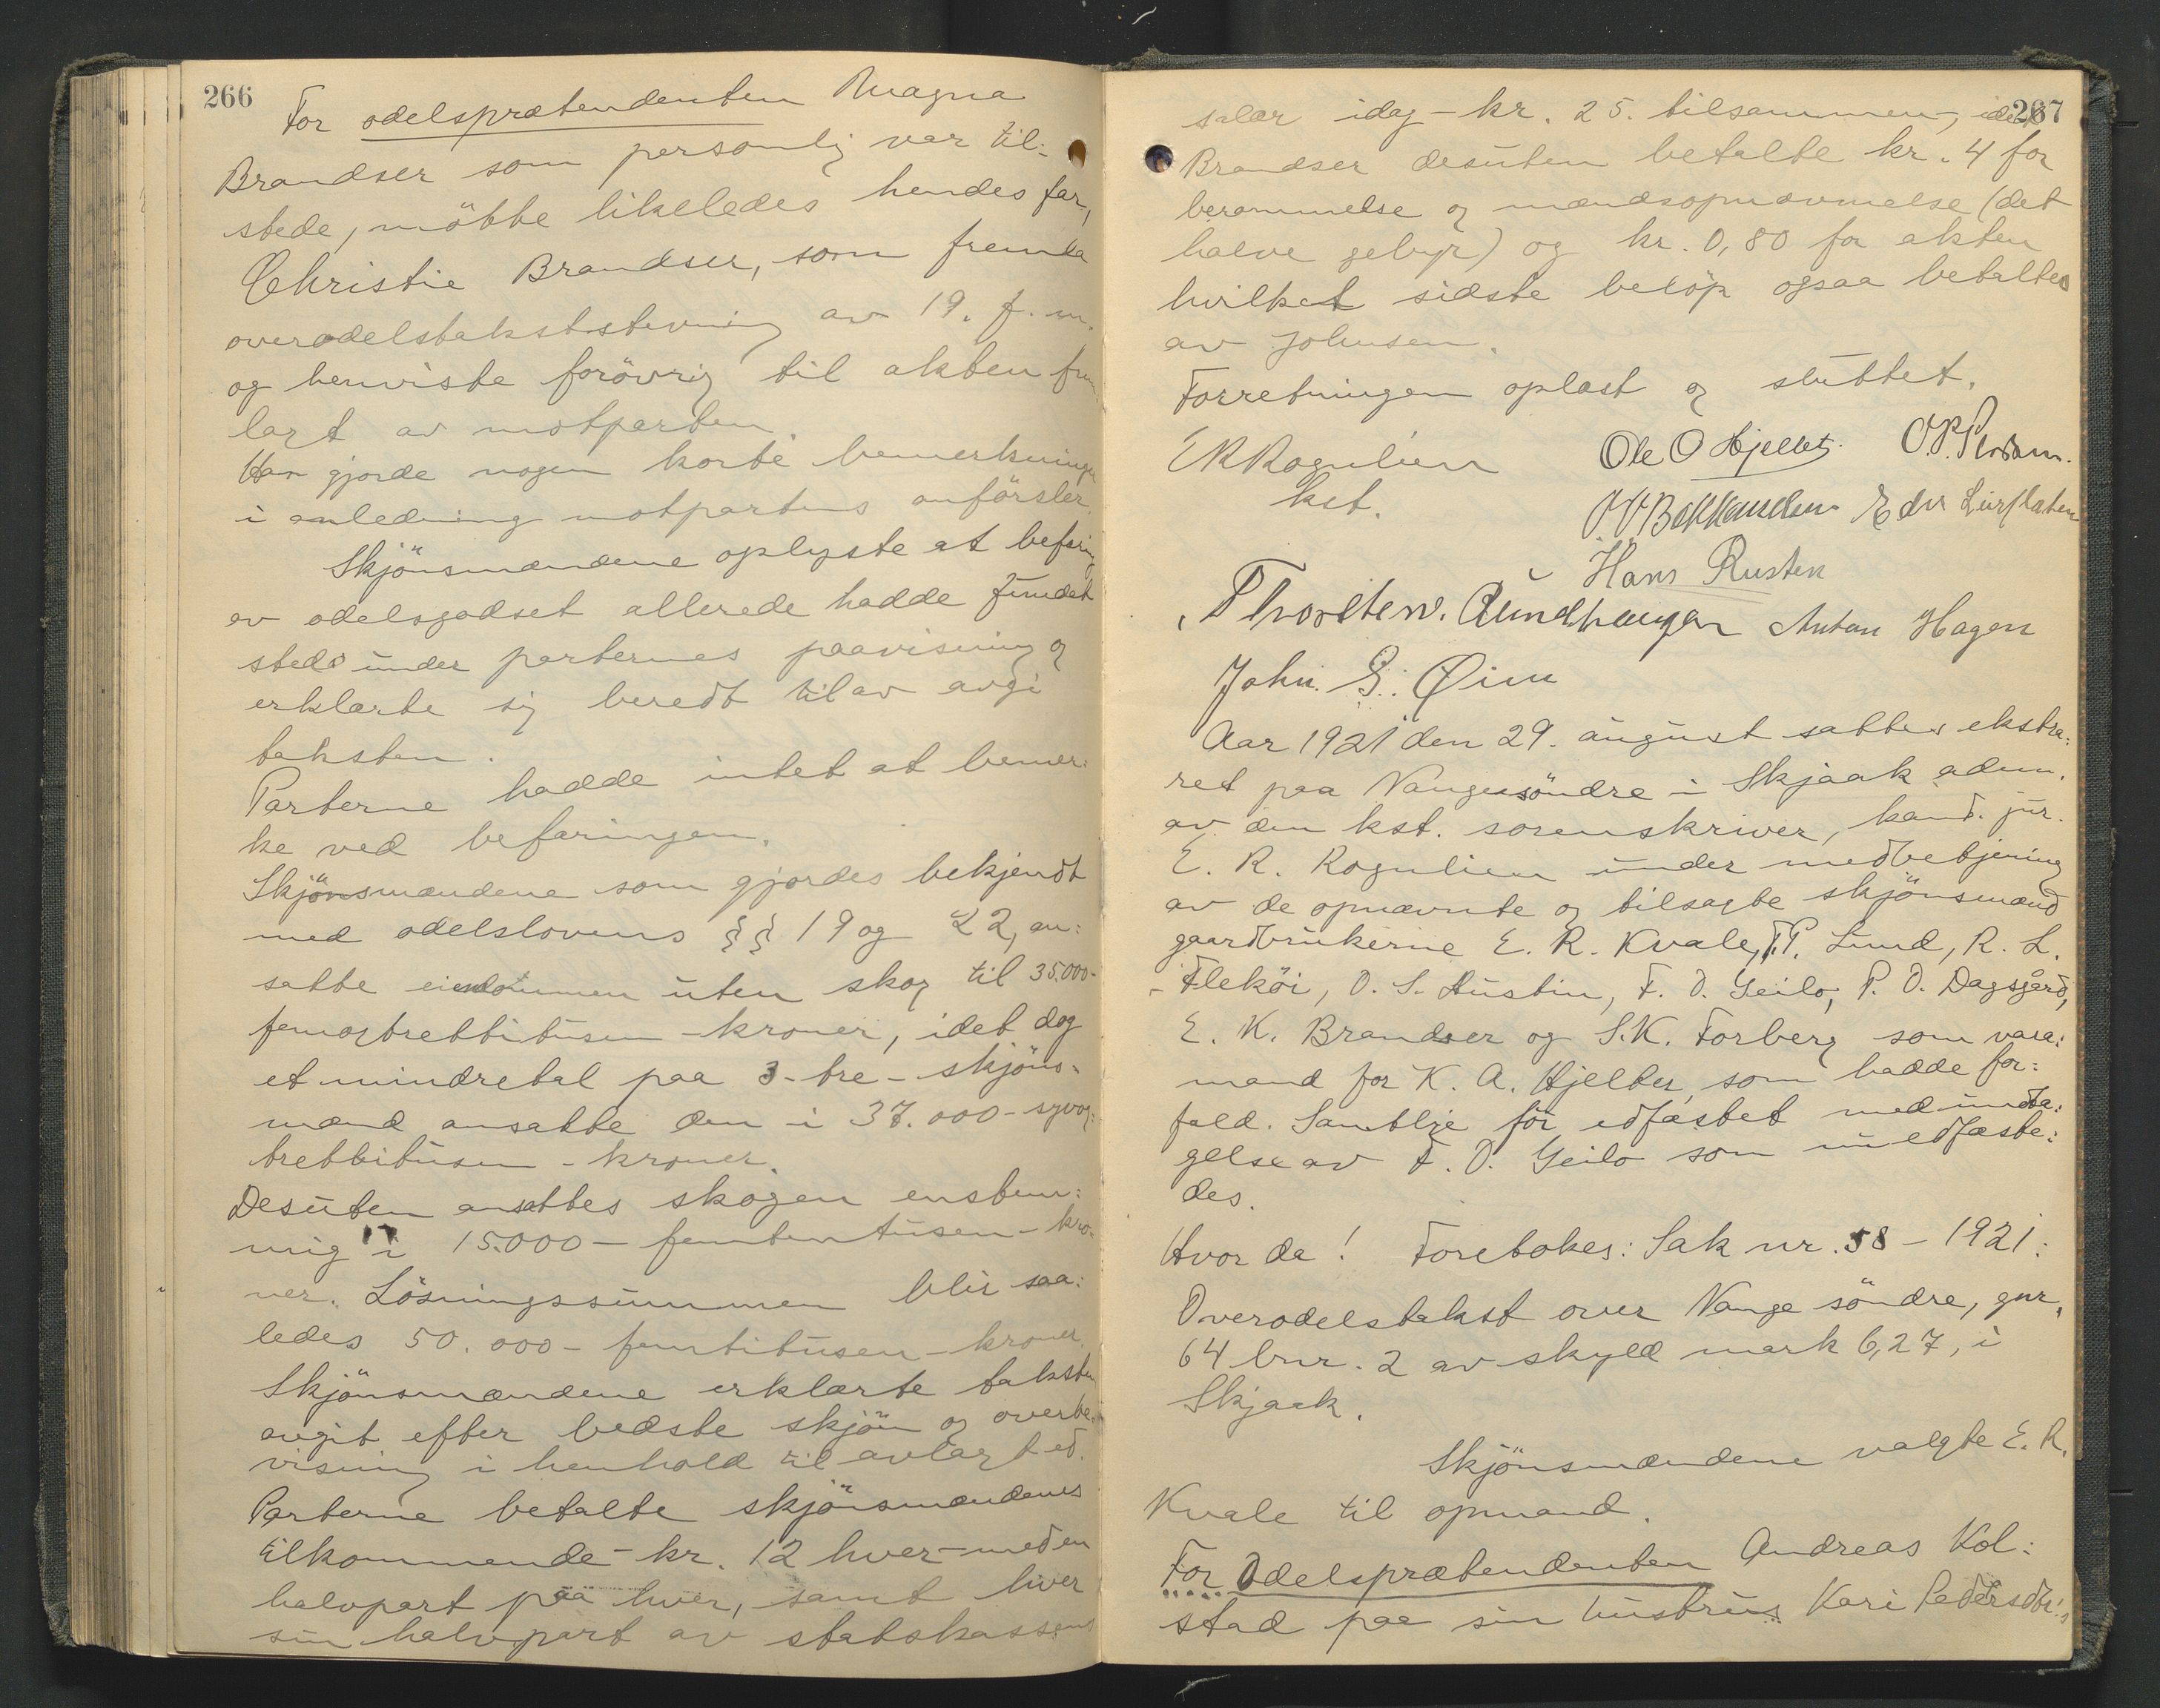 266
For odelsprætendenten Magna
Brandser som personlig var til-
stede, mötte likeledes hendes far,
Christie Brandser, som fremla
overodelstakststevning av 19. f. m.
og henviste forövrig til akten frem
lagt av motparten.
Han gjorde nogen korte bemerkninger
i anledning motpartens anförsler.
Skjönsmændene oplyste at befaring
av odelsgodset allerede hadde fundet
sted under parternes paavisning og
erklærte sig beredt til av avgi
taksten.
Parterne hadde intet at bemer:
ke ved befaringen.
Skjönsmændene som gjordes bekjendt
med odelslovens §§ 19 og 22, an:
satte eiendommen uten skog til 35.000-
femogtrettitusen - kroner, idet dog
et mindretal paa 3 - tre - skjöns-
mænd ansatte den i 37.000 - syvog:
trettitusen - kroner.
Desuten ansattes skogen enstem:
mig i 15.000 - femtentusen - kro-
ner. Lösningssummen blir saa:
ledes 50.000 - femtitusen - kroner.
Skjönsmændene erklærte taksten
avgit efter bedste skjön og overbe-
visning i henhold til avlagt ed.
Parterne betalte skjönsmændenes
tilkommende - kr. 12 hver - med en
halvpart paa hver, samt hver
sin halvpart av statskassens
267
salær idag - kr. 25. tilsammen, idet
Brandser desuten betalte kr. 4 for
berammelse og mændsopnævnelse (det
halve gebyr) og kr. 0,80 for akten
hvilket sidste belöp ogsaa betaltes
av Johnsen.
Forretningen oplæst og sluttet.
E R Rognlien Ole O Hjeltet. O.P.
kst. Bakkenselsen Edv Lusflaten
Hans Rusten
Thorsten. Sundhaugen Anton Hagen
John. G. Øien
Aar 1921 den 29. august sattes ekstra:
ret paa Nangesöndre i Skjaak adm.
av den kst. sorenskriver, kand. jur.
E. R. Rognlien under medbetjening
av de opnævnte og tilsagte skjönsmænd
gaardbrukerne E. R. Kvale, T.P. Lund, R. L.
Fleköi, O. S. Hustin, F. O. Geilo, P. O. Dagsgård,
E. K. Brandser og S. K. Forberg som vara:
mand for K. A. Hjeltes, som hadde for:
fald. Samtlige för edfæstet med undta:
gelse av F. O. Geilo som nu edfæste:
des.
Hvor da! Foretokes: Sak nr. 58 - 1921:
Overodelstakst over Nange söndre, gnr.
64 bnr. 2 av skyld mark 6,27, i
Skjaak.
Skjönsmændene valgte E. R.
Kvale til opmand.
For Odelsprætendenten Andreas Kol:
stad paa sin hustrus Kari Pedersdtr.s